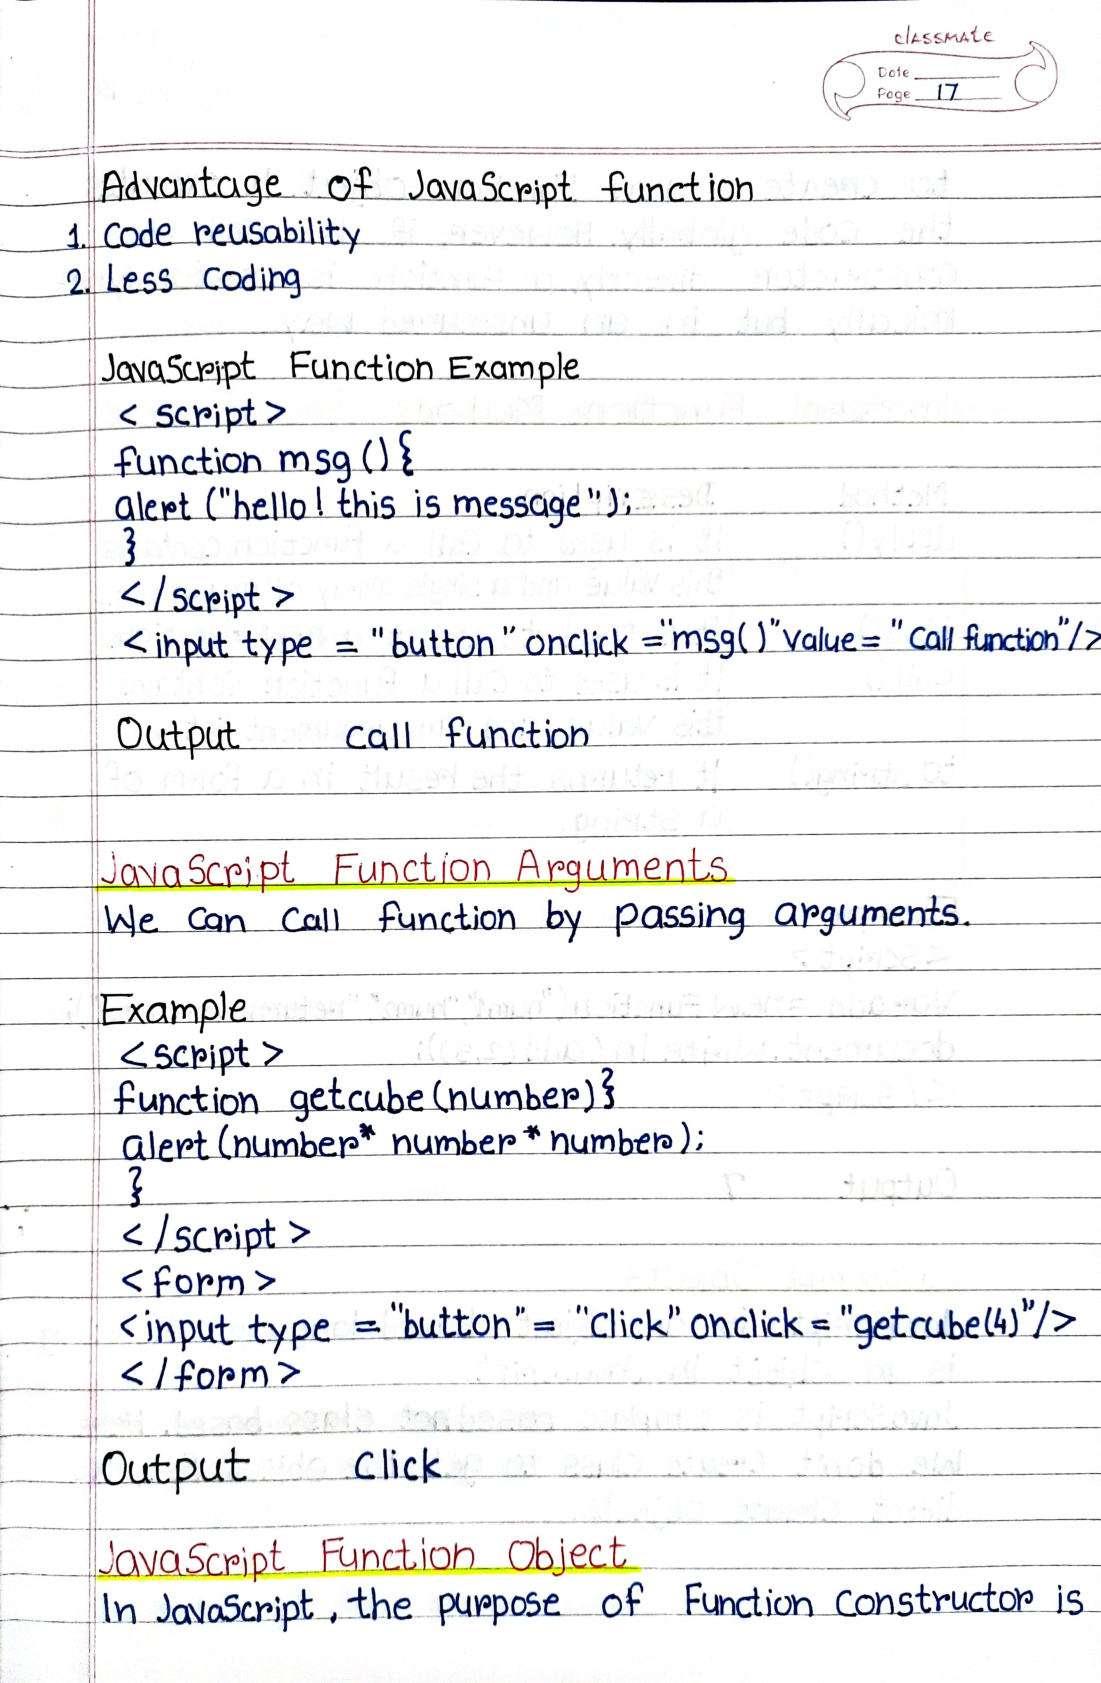 classmate
Date
Page 17
Advantage of JavaScript function
1. Code reusability
2. Less Coding
JavaScript Function Example
< script>
function msg () {
alert ("hello! this is message");
}
</script>
<input type = "button" onclick = "msg()" value = "Call function"/>
Output call function
JavaScript Function Arguments
We Can Call function by passing arguments.
Example
<script>
function getcube(number)}
alert (number* number * number);
}
</script>
<form>
<input type = "button" = "Click" onclick = "getcube(4)"/>
</form>
Output Click
JavaScript Function Object
In JavaScript, the purpose of Function Constructor is